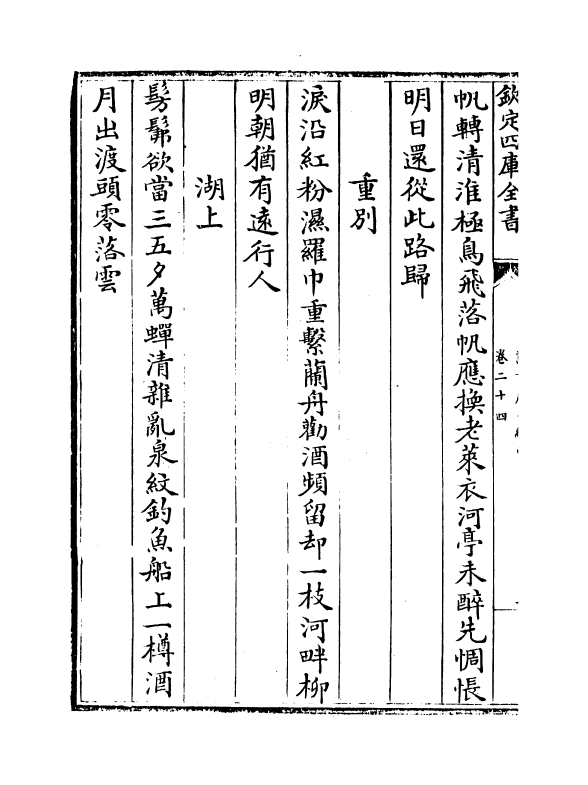 欽定四庫全書
卷二十四
帆轉清淮極鳥飛落帆應換老萊衣河亭未醉先惆悵
明日還從此路歸
重別
淚沿紅粉濕羅巾重繫蘭舟勸酒頻留却一枝河畔柳
明朝猶有遠行人
湖上
髣髴欲當三五夕萬蟬清雜亂泉紋釣魚船上一樽酒
月出渡頭零落雲